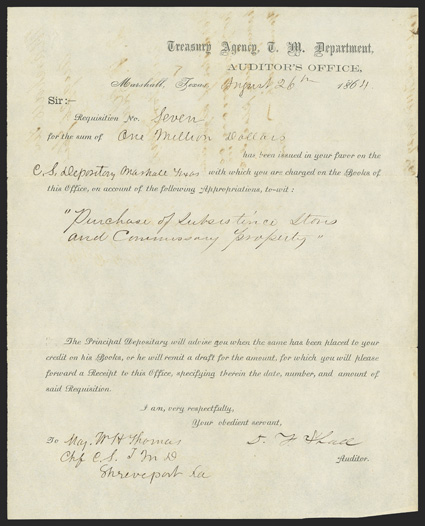 Treasury Agency, T. M. Department,
AUDITOR'S OFFICE,
Marshall, Texas August 26th 1864
Sir:-
Requisition No. Seven
for the sum of One Million Dollars
has been issued in your favor on the
C. S. Depository Marshall Texas with which you are charged on the Books of
this Office, on account of the following Appropriations, to-wit:
"Purchase of Subsistence Stores
and Commissary Property"
The Principal Depositary will advise you when the same has been placed to your
credit on his Books, or he will remit a draft for the amount, for which you will please
forward a Receipt to this Office, specifying therein the date, number, and amount of
said Requisition.
I am, very respectfully,
Your obedient servant,
To Maj. W H Thomas
Auditor.
Chf C. S. T M D
Shreveport La